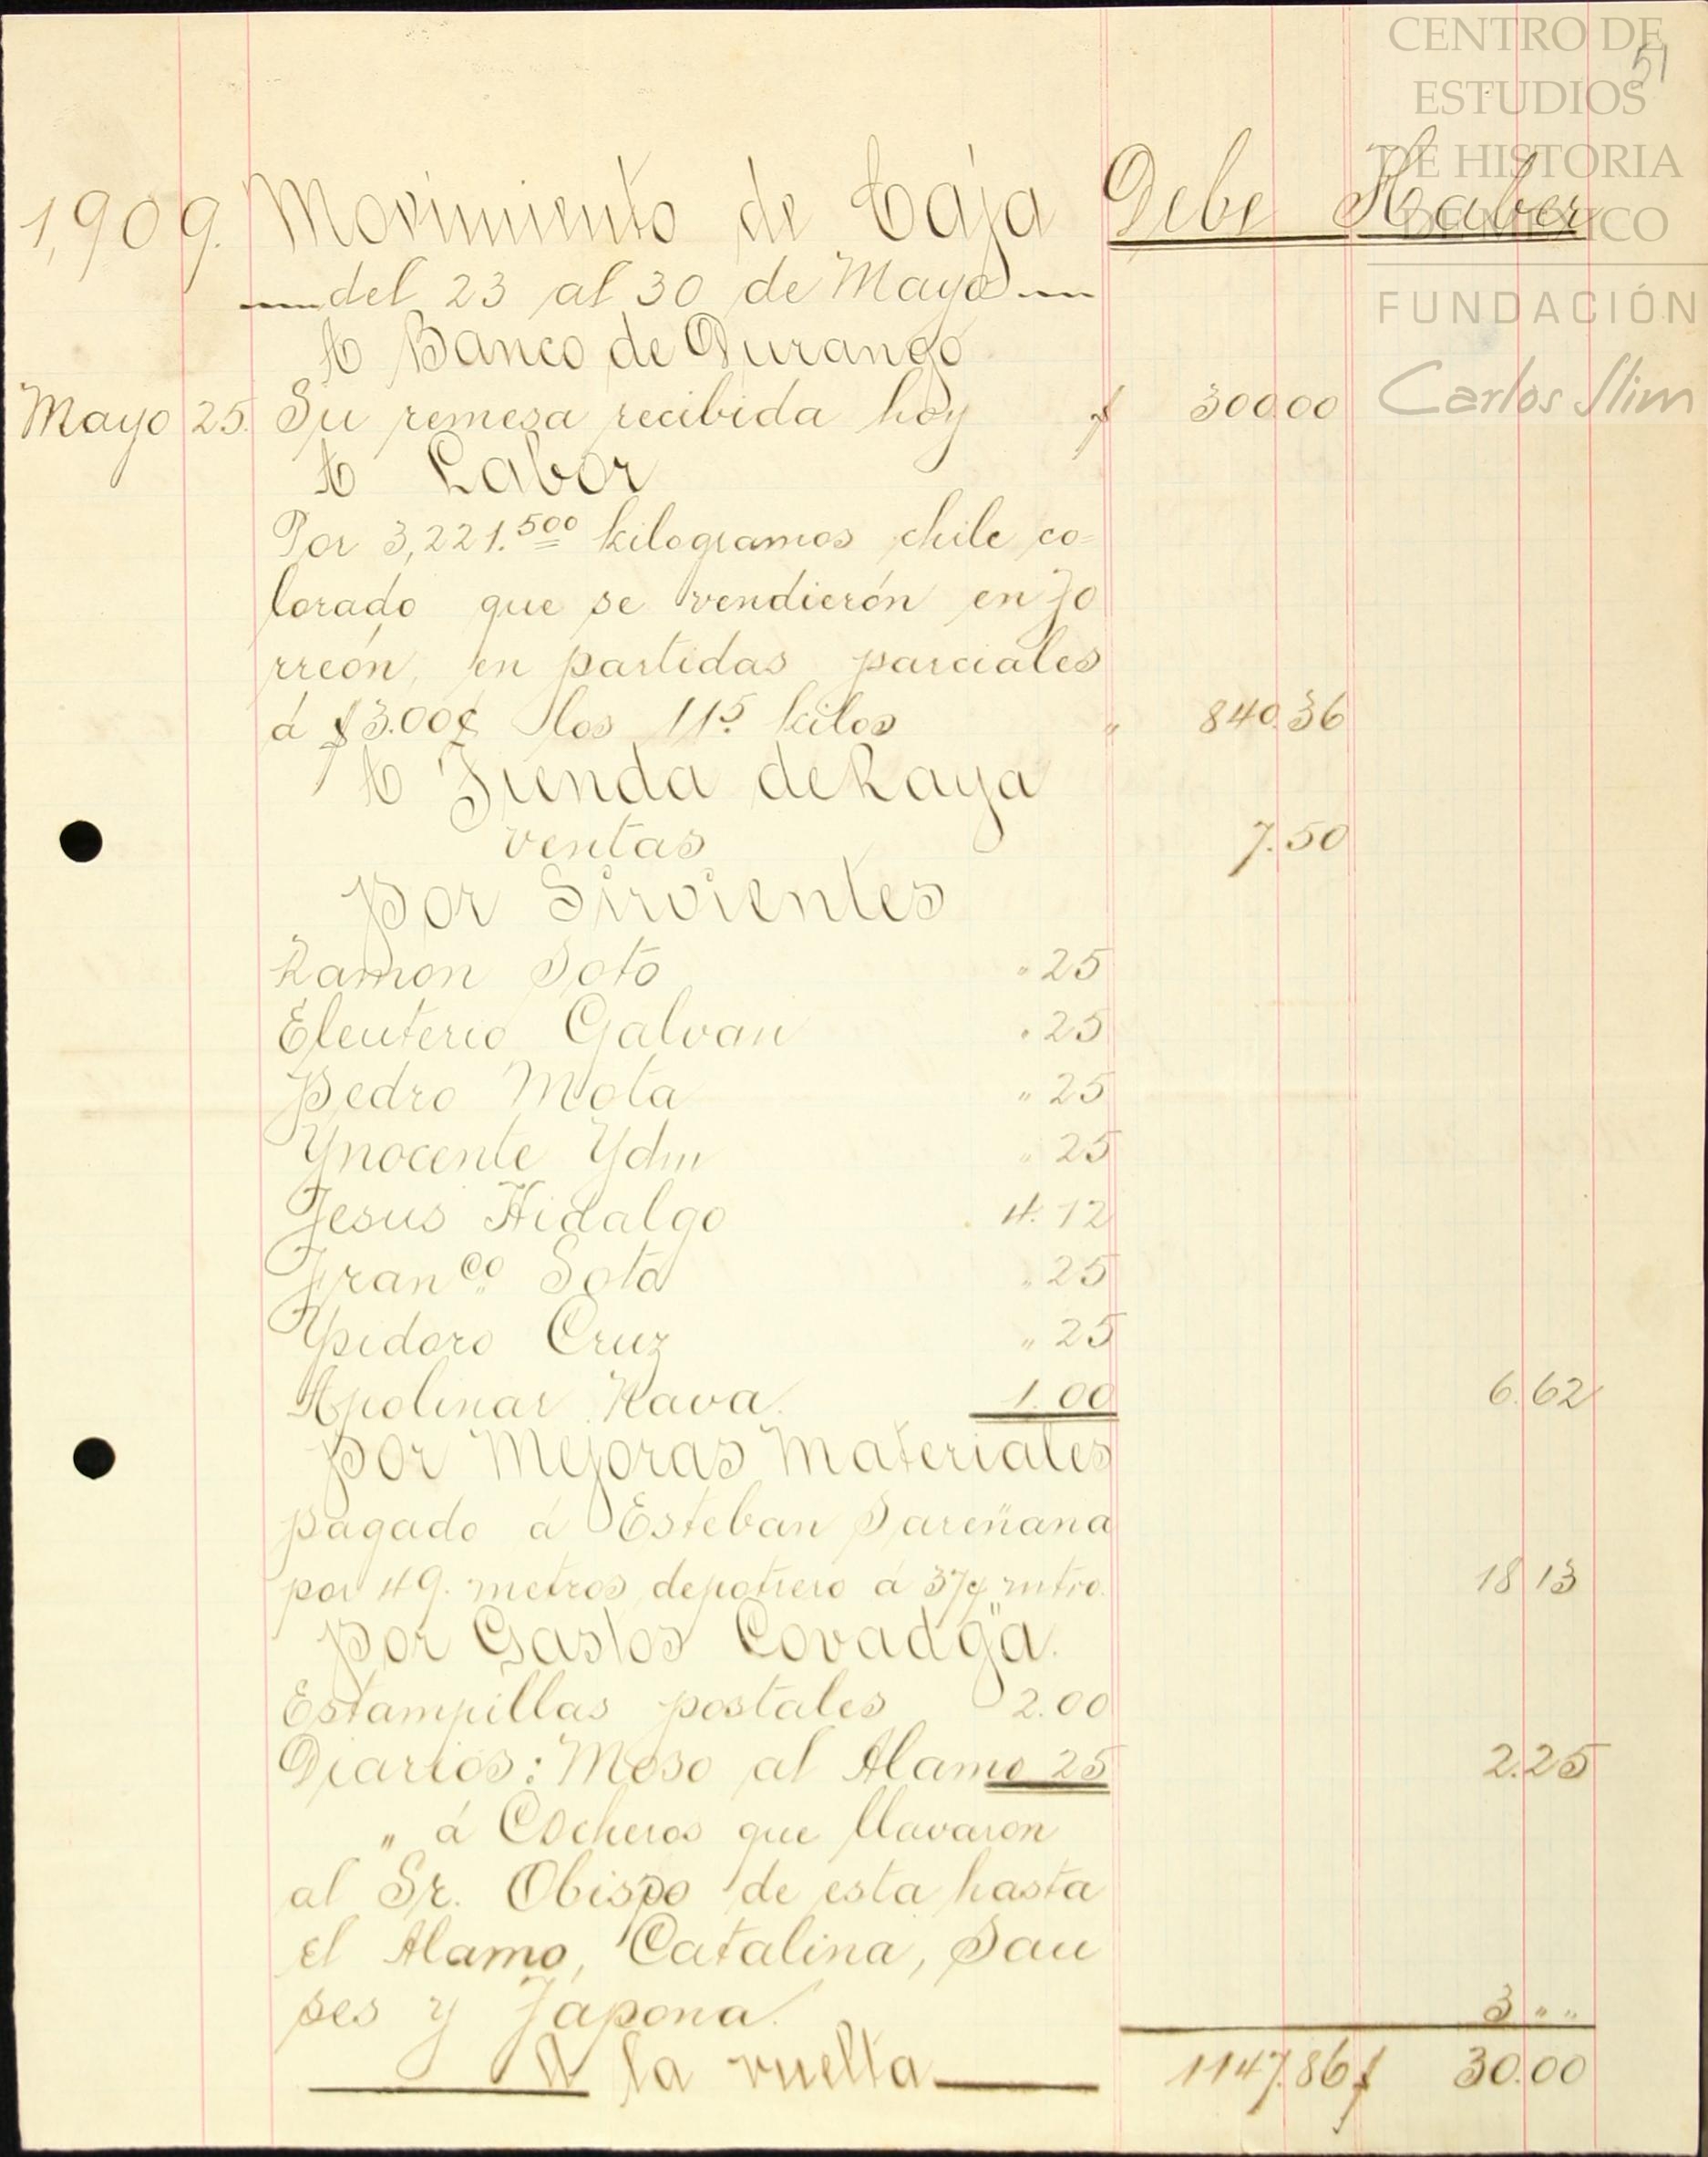 CENTRO DE
ESTUDIOS
DE HISTORIA
DE MÉXICO
FUNDACIÓN
Carlos Slim
51
1,909. Movimiento de Caja Debe Haber
del 23 al 30 de Mayo
A Banco de Durango
Mayo 25. Su remesa recibida hoy $ 300.00
A Labor
Por 3,221.500 kilogramos chile co=
lorado que se vendierón en To
rreón, en partidas parciales
á $3.00¢ los 11⁵ kilos " 840.36
A Tienda de Raya
ventas 7.50
por Sirvientes
Ramon Soto " 25
Eleuterio Galvan " 25
Pedro Mota " 25
Ynocente Ydm " 25
Jesus Hidalgo 4.12
Franco Soto " 25
Ysidoro Cruz " 25
Apolinar Nava. 1.00 6.62
por Mejoras Materiales
pagado á Esteban Sareñana
por 49. metros de potrero á 37¢ mtro. 18 13
por Gastos Covadga.
Estampillas postales 2.00
Diarios: Moso al Alamo 25 2.25
" á Cocheros que llavaron
al Sr. Obispo de esta hasta
el Alamo, Catalina, Sau
ses y Japona. 3 " "
A la vuelta 1147.86 $ 30.00